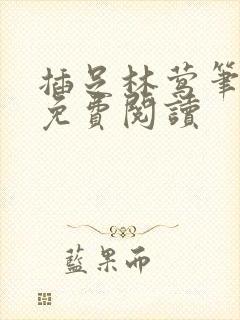 插足林莺筆
免費閱讀
藍果而